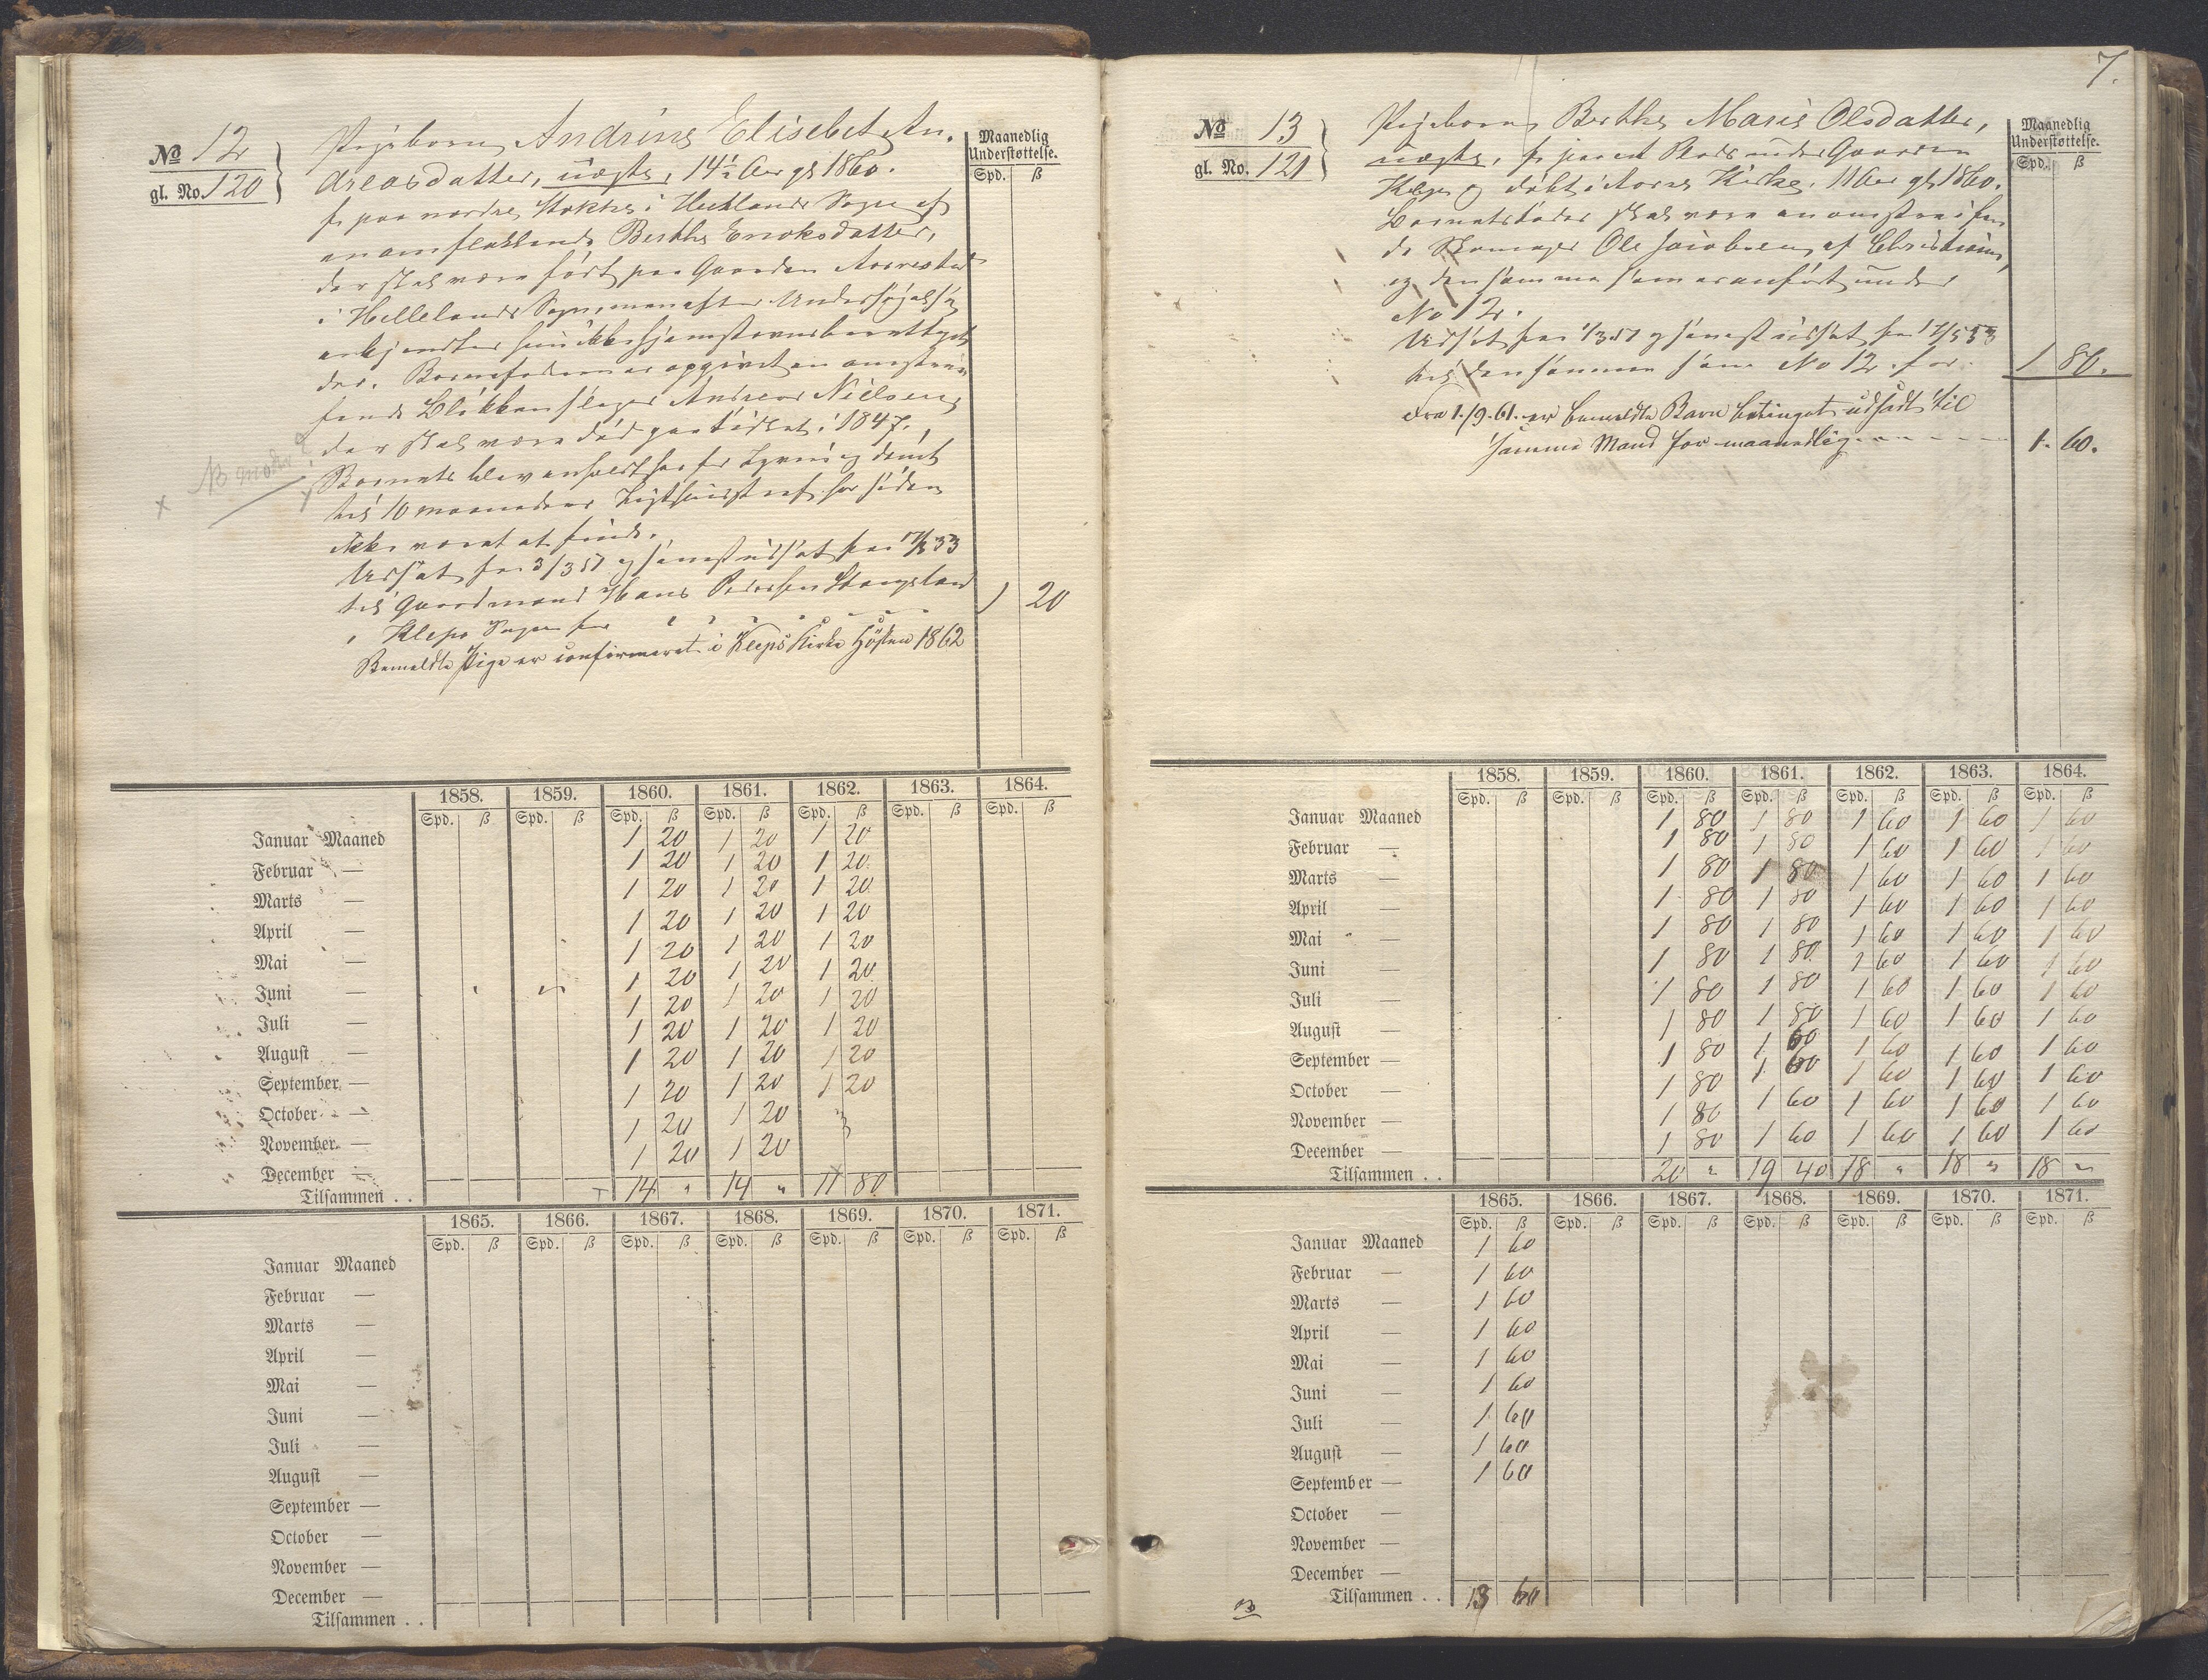 No 12
gl. No. 120
Pigebarn Andrine Elisebet An-
dreasdatter, uægte, 14½ Aar gl 1860.
f. paa nordre i Sogn af
en omflakkende Berthe Enoksdatter,
der skal være født paa Gaarden
i Hellelands Sogn, men efter Undersøgelse
hun ikke hjemstavnsberettiget
der. Barnefaderen er opgivet en omstrei-
fende Blikkenslager Andreas Nielsen,
der skal være død paa i 1847.
Barnets blev for og dømt
til 10 maaneders har siden
ikke været at finde.
Udsat fra 3/3 57 og senest udsat fra
til Gaardmand Hans Pedersen Stangeland
i Kleps Sogn for
Bemeldte Pige er confirmeret i Kleps Kirke Høsten 1862
NB moder
Maanedlig
Understøttelse.
Spd. ß
1 20
1858. 1859. 1860. 1861. 1862. 1863. 1864.
Spd. ß Spd. ß Spd. ß Spd. ß Spd. ß Spd. ß Spd. ß
Januar Maaned 1 20 1 20 1 20
Februar — 1 20 1 20 1 20
Marts — 1 20 1 20 1 20
April — 1 20 1 20 1 20
Mai — 1 20 1 20 1 20
Juni — 1 20 1 20 1 20
Juli — 1 20 1 20 1 20
August — 1 20 1 20 1 20
September — 1 20 1 20 1 20
October — 1 20 1 20 1 20
November — 1 20 1 20
December — 1 20 1 20
Tilsammen . . 14 " 14 " 11 80
1865. 1866. 1867. 1868. 1869. 1870. 1871.
Spd. ß Spd. ß Spd. ß Spd. ß Spd. ß Spd. ß Spd. ß
Januar Maaned
Februar —
Marts —
April —
Mai —
Juni —
Juli —
August —
September —
October —
November —
December —
Tilsammen . .
7.
No 13
gl. No. 121
Pigebarn Berthe Marie Olsdatter,
uægte, f. paa et Plads under Gaarden
og døbt i Kirke, 11 Aar gl 1860.
Barnets Fader skal være en omstreifen-
de Skomager Ole Jacobsen af Christiania,
og den samme som er anført under
No 12.
Udsat fra 1/3 57 og senest udsat fra
til den samme som No 12 for
Fra 1/9.61. er bemeldte Barn betinget udsadt til
samme Mand for maanedlig - - - -
Maanedlig
Understøttelse.
Spd. ß
1 80.
1. 60.
1858. 1859. 1860. 1861. 1862. 1863. 1864.
Spd. ß Spd. ß Spd. ß Spd. ß Spd. ß Spd. ß Spd. ß
Januar Maaned 1 80 1 80 1 60 1 60 1 60
Februar — 1 80 1 80 1 60 1 60 1 60
Marts — 1 80 1 80 1 60 1 60 1 60
April — 1 80 1 80 1 60 1 60 1 60
Mai — 1 80 1 80 1 60 1 60 1 60
Juni — 1 80 1 80 1 60 1 60 1 60
Juli — 1 80 1 80 1 60 1 60 1 60
August — 1 80 1 80 1 60 1 60 1 60
September — 1 80 1 60 1 60 1 60 1 60
October — 1 80 1 60 1 60 1 60 1 60
November — 1 80 1 60 1 60 1 60 1 60
December — 1 80 1 60 1 60 1 60 1 60
Tilsammen . . 20 " 19 40 18 " 18 " 18 "
1865. 1866. 1867. 1868. 1869. 1870. 1871.
Spd. ß Spd. ß Spd. ß Spd. ß Spd. ß Spd. ß Spd. ß
Januar Maaned 1 60
Februar — 1 60
Marts — 1 60
April — 1 60
Mai — 1 60
Juni — 1 60
Juli — 1 60
August — 1 60
September — 1 60
October —
November —
December —
Tilsammen . . 13 60